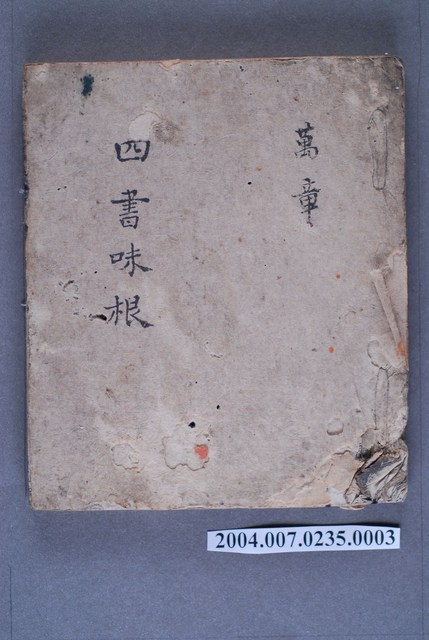 萬章
四書味根
2004.007.0235.0003